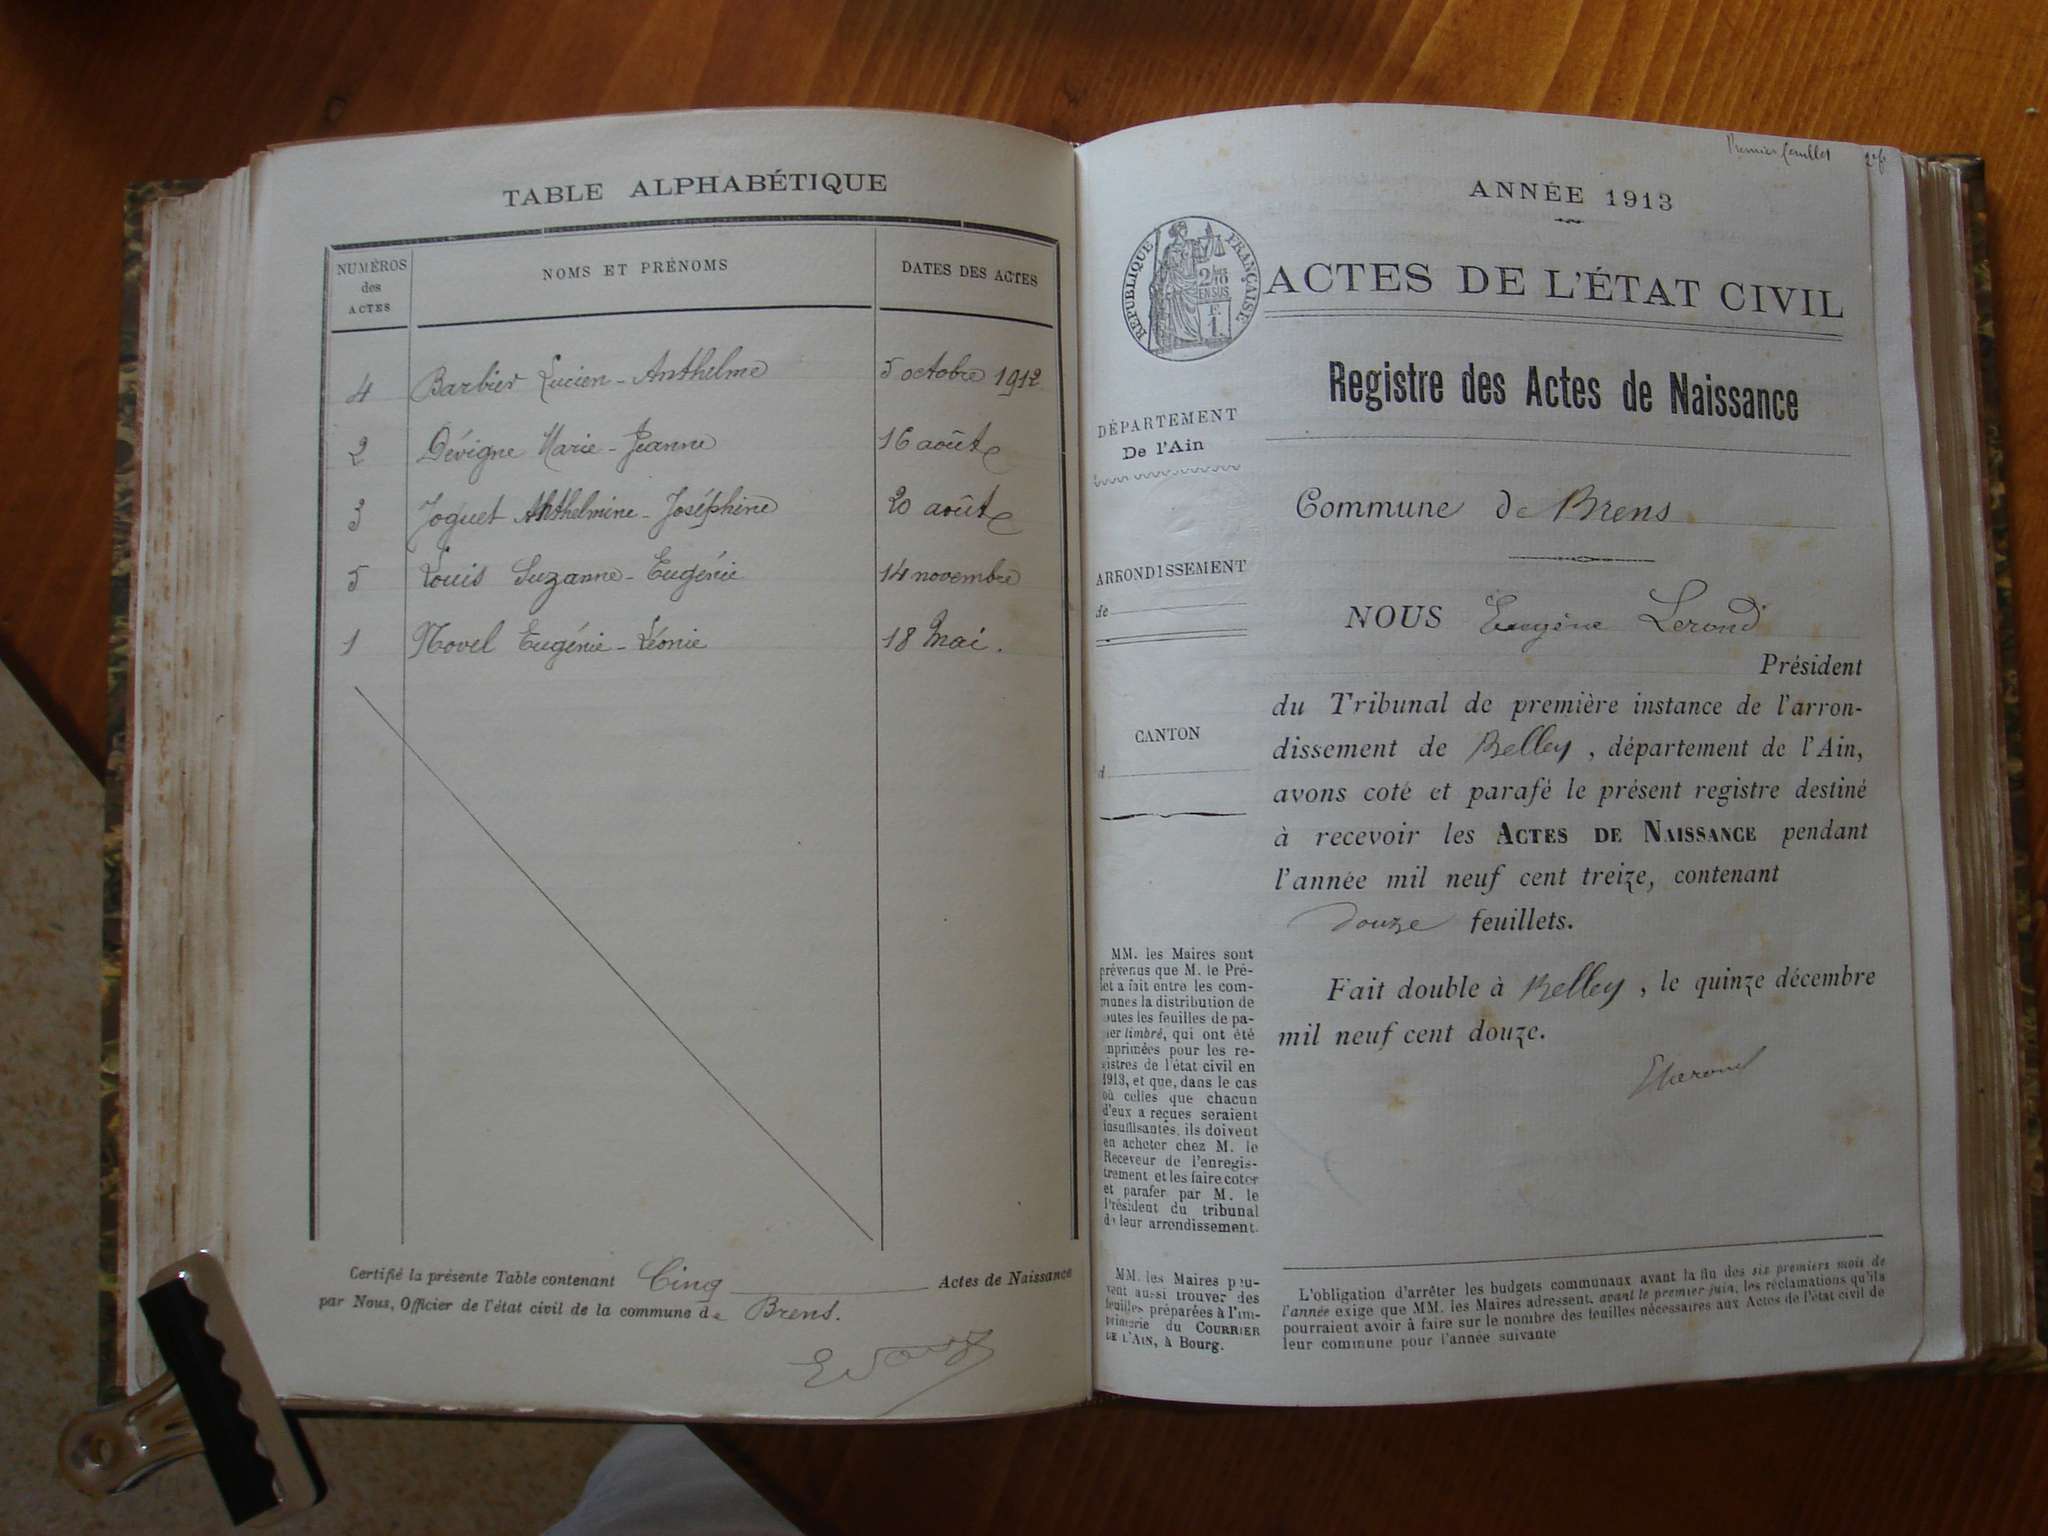 TABLE ALPHABÉTIQUE
NUMÉROS
des
ACTES
NOMS ET PRÉNOMS
DATES DES ACTES
4 Barbier Lucien-Anthelme 5 octobre 1912
2 Dévigne Marie-Jeanne 16 août
3 Joguet Anthelmine-Joséphine 20 août
5 Louis Suzanne-Eugénie 14 novembre
1 Novel Eugénie-Léonie 18 Mai.
Certifié la présente Table contenant Cinq Actes de Naissance
par Nous, Officier de l'état civil de la commune de Brens.
Premier feuillet
ANNÉE 1913
RÉPUBLIQUE FRANÇAISE
2/10
EN SUS
F.
1.
ACTES DE L'ÉTAT CIVIL
Registre des Actes de Naissance
DÉPARTEMENT
De l'Ain
Commune de Brens
ARRONDISSEMENT
de
CANTON
d
NOUS Eugène Lerond
Président
du Tribunal de première instance de l'arron-
dissement de Belley, département de l'Ain,
avons coté et parafé le présent registre destiné
à recevoir les ACTES DE NAISSANCE pendant
l'année mil neuf cent treize, contenant
douze feuillets.
Fait double à Belley, le quinze décembre
mil neuf cent douze.
MM. les Maires sont
prévenus que M. le Pré-
fet a fait entre les com-
munes la distribution de
toutes les feuilles de pa-
pier timbré, qui ont été
imprimées pour les re-
gistres de l'état civil en
1913, et que, dans le cas
où celles que chacun
d'eux a reçues seraient
insuffisantes, ils doivent
en acheter chez M. le
Receveur de l'enregis-
trement et les faire coter
et parafer par M. le
Président du tribunal
de leur arrondissement.
MM. les Maires peu-
vent aussi trouver des
feuilles préparées à l'im-
primerie du COURRIER
DE L'AIN, à Bourg.
L'obligation d'arrêter les budgets communaux avant la fin des six premiers mois de
l'année exige que MM. les Maires adressent, avant le premier juin, les réclamations qu'ils
pourraient avoir à faire sur le nombre des feuilles nécessaires aux Actes de l'état civil de
leur commune pour l'année suivante